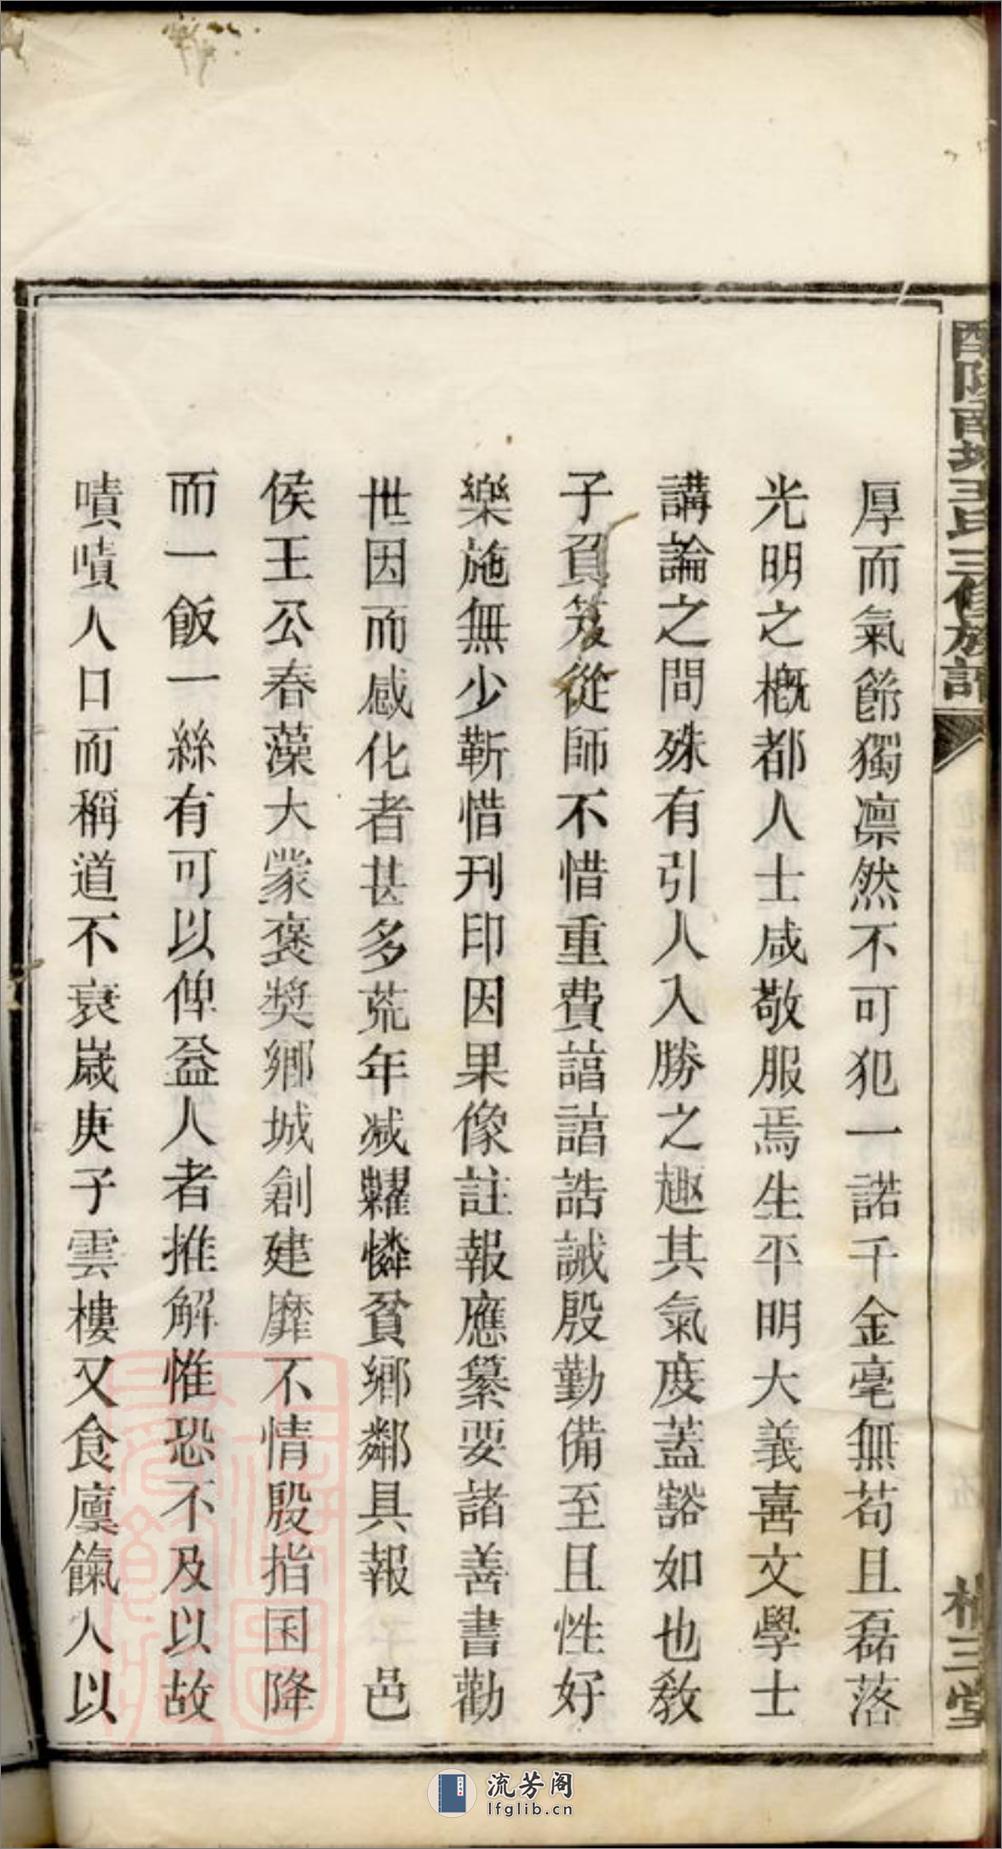 厚而氣節獨凛然不可犯一諾千金毫無苟且磊落
光明之概都人士咸敬服焉生平明大義喜文學士
講論之間殊有引人入勝之趣其氣度蓋豁如也教
子負笈從師不惜重費諄諄誥誡殷勤備至且性好
樂施無少靳惜刊印因果像註報應纂要諸善書勸
世因而感化者甚多荒年减糶憐貧鄉鄰具報 邑
侯王公春藻大蒙褒奬鄉城創建靡不情殷指囯降
而一飯一絲有可以俾益人者推解惟恐不及以故
嘖嘖人口而稱道不衰歲庚子雲樓又食廩餼人以
陵南 王氏三修族譜
三堂
流芳阁
lfglib.cn